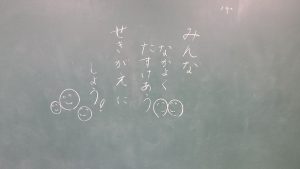 みんな
なかよく
たすけあう
せきがえに
しよう!